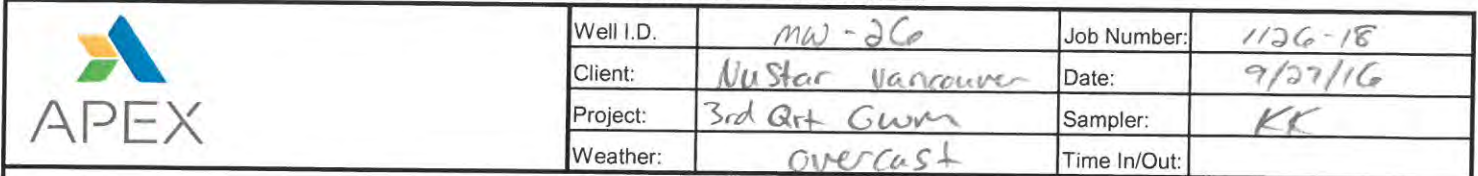 Well I.D. MW-26 Job Number: 1126-18
Client: NuStar Vancouver Date: 9/27/16
Project: 3rd Qrt GWM Sampler: KK
APEX
Weather: overcast Time In/Out: